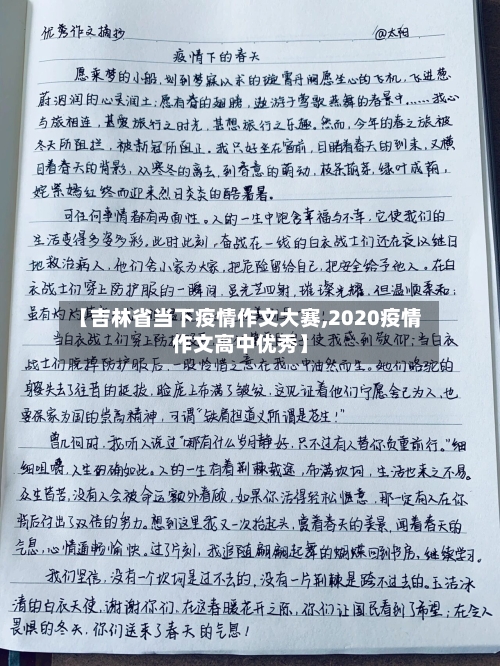 优秀作文摘抄 @太阳
疫情下的春天
愿乘梦的小船,划到梦寐以求的璇霄丹阙愿生心的飞机,飞进葱
蔚洇润的心灵润土;愿有春的翅膀,遨游于莺歌燕舞的春景中……我心
与旅相连,甚爱旅行之时光,甚想旅行之乐趣。然而,今年的春之旅被
冬天所阻拦,被新冠所阻止。我只好坐在窗前,目睹着春天的到来,又横
目看春天的背影,从寒冬的离去,到春意的萌动,枝条萌芽,绿叶成荫,
姹紫嫣红终而迎来烈日炎炎的酷暑暑。
可任何事情都有两面性。人的一生中饱含幸福与不幸,它使我们的
生活变得多姿多彩,此时此刻,奋战在一线的白衣战士们还在夜以继日
地救治病人,他们舍小家为大家,把危险留给自己,把安全给予他人。在白
衣战士们穿上防护服的一瞬间,虽光芒四射,璀璨光耀,但温顺柔和;
虽有灼灼
【吉林省当下疫情作文大赛,2020疫情
作文高中优秀】
当白衣战士们穿上防 使我感到敬仰;当白衣
战士们脱掉防护服后,一股怜惜之意在我心中油然而生。她们略驼的
身躯失去了往昔的挺拔,脸庞上布满了皱纹,这见证着他们宁愿舍己为人,也
要保家为国的崇高精神,可谓"铁肩担道义所谓是苍生!"
曾几何时,我听人说过"哪有什么岁月静好,只不过有人替你负重前行。"细
细咀嚼,人生的确如此。人的一生有着荆棘载途,布满坎坷,生活也来之不易。
众生皆苦,没有人会被命运额外眷顾,如果你活得轻松惬意,那一定有人在你
背后付出了双倍的努力。想到这里我又一次抬起头,赏着春天的美景,闻着春天的
气息,心情通畅愉快。过了片刻,我追随翩翩起舞的蝴蝶回到书房,继续学习。
我们坚信,没有一个坎坷是过不去的,没有一片荆棘是跨不过去的。玉洁冰
清的白衣天使,谢谢你们,在这春暖花开之际,你们让国民看到了希望;在令人
畏惧的冬天,你们送来了春天的气息!